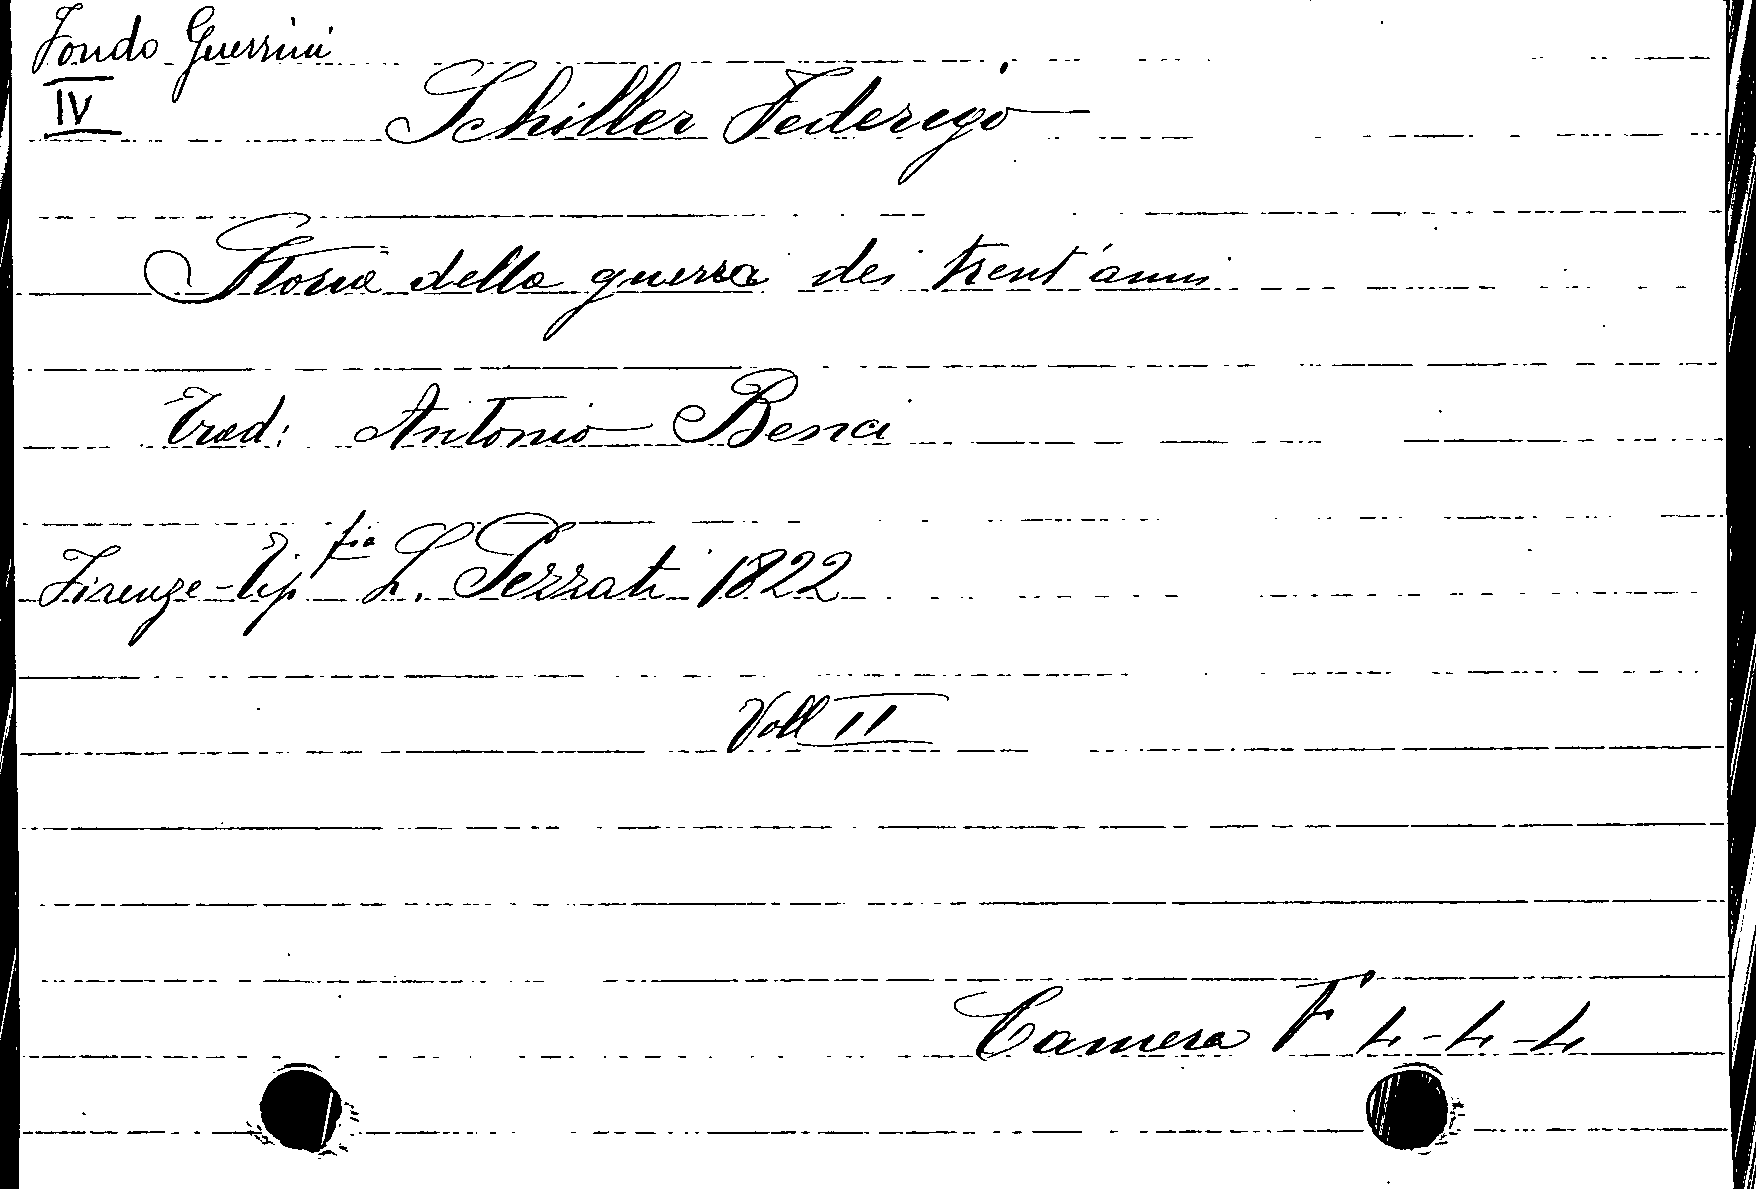 Fondo Guerrini
IV
Schiller Federigo
Storia della guerra dei trent'anni
Trad: Antonio Benci
Firenze - Tip.fia L. Pezzati 1822
Voll II
Camera F 4-4-4